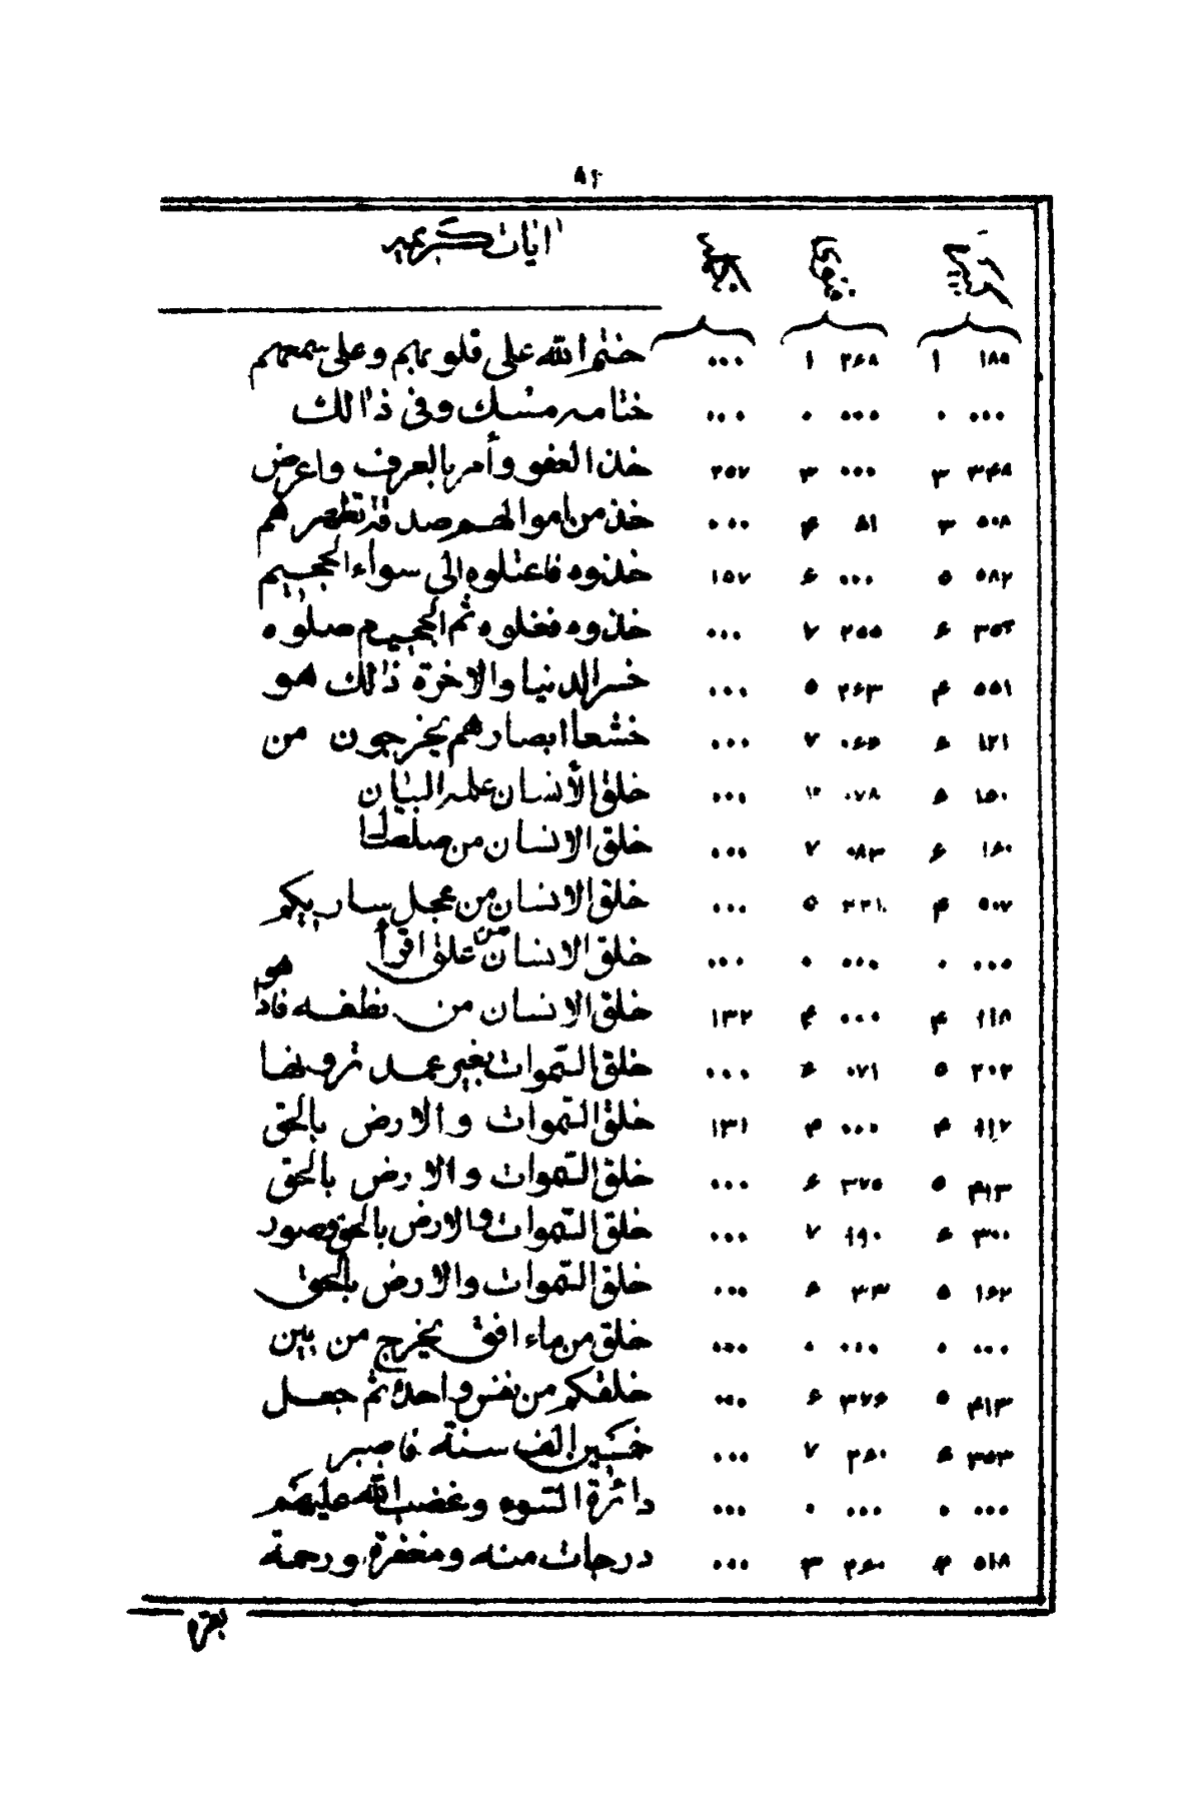 ٨٢
ايات كريمه
١٨٥ ١ ٢٦٨ ١ ٠٠٠ ختم الله على قلوبهم وعلى سمعهم
٠٠٠ ٠ ٠٠٠ ٠ ٠٠٠ ختامه مسك وفى ذالك
٣٤٨ ٣ ٠٠٠ ٣ ٢٥٧ خذ العفو وأمر بالعرف واعرض
٥٠٨ ٣ ٨١ ٤ ٠٠٠ خذ من اموالهم صدقة تطهرهم
٥٨٢ ٥ ٠٠٠ ٦ ١٥٧ خذوه فاعتلوه الى سواء الجحيم
٣٥٢ ٦ ٢٥٥ ٧ ٠٠٠ خذوه فغلوه ثم الجحيم صلوه
٥٥١ ٤ ٢٦٣ ٥ ٠٠٠ خسر الدنيا والاخرة ذالك هو
١٢١ ٦ ٠٦٤ ٧ ٠٠٠ خشعا ابصارهم يخرجون من
١٥٠ ٥ ٠٧٨ ٠٠٠ خلق الأنسان علمه البيان
١٦٠ ٦ ٠٨٣ ٧ ٠٠٠ خلق الانسان من صلصال
٥٠٧ ٤ ٢٢١ ٥ ٠٠٠ خلق الانسان من عجل ساريكم
٠٠٠ ٠ ٠٠٠ ٠ ٠٠٠ خلق الانسان من علق اقرأ
١١٨ ٤ ٠٠٠ ٤ ١٣٢ خلق الانسان من نطفه فاذا هو
٢٠٢ ٥ ٠٧١ ٦ ٠٠٠ خلق السموات بغير عمد ترونها
١١٧ ٤ ٠٠٠ ٤ ١٣١ خلق السموات والارض بالحق
٤١٣ ٥ ٣٧٥ ٦ ٠٠٠ خلق السموات والارض بالحق
٣٠٠ ٦ ١٩٠ ٧ ٠٠٠ خلق السموات والارض بالحق وصور
١٦٢ ٥ ٣٣ ٦ ٠٠٠ خلق السموات والارض بالحق
٠٠٠ ٠ ٠٠٠ ٠ ٠٠٠ خلق من ماء افق يخرج من بين
٤١٣ ٥ ٣٧٦ ٦ ٠٠٠ خلقكم من نفس واحدة ثم جعل
٣٥٣ ٦ ٢٨٠ ٧ ٠٠٠ خمسين الف سنة فاصبر
٠٠٠ ٠ ٠٠٠ ٠ ٠٠٠ دائرة السوء وغضب الله عليهم
٥١٨ ٢ ٢٦٠ ٣ ٠٠٠ درجات منه ومغفرة ورحمة
بقره